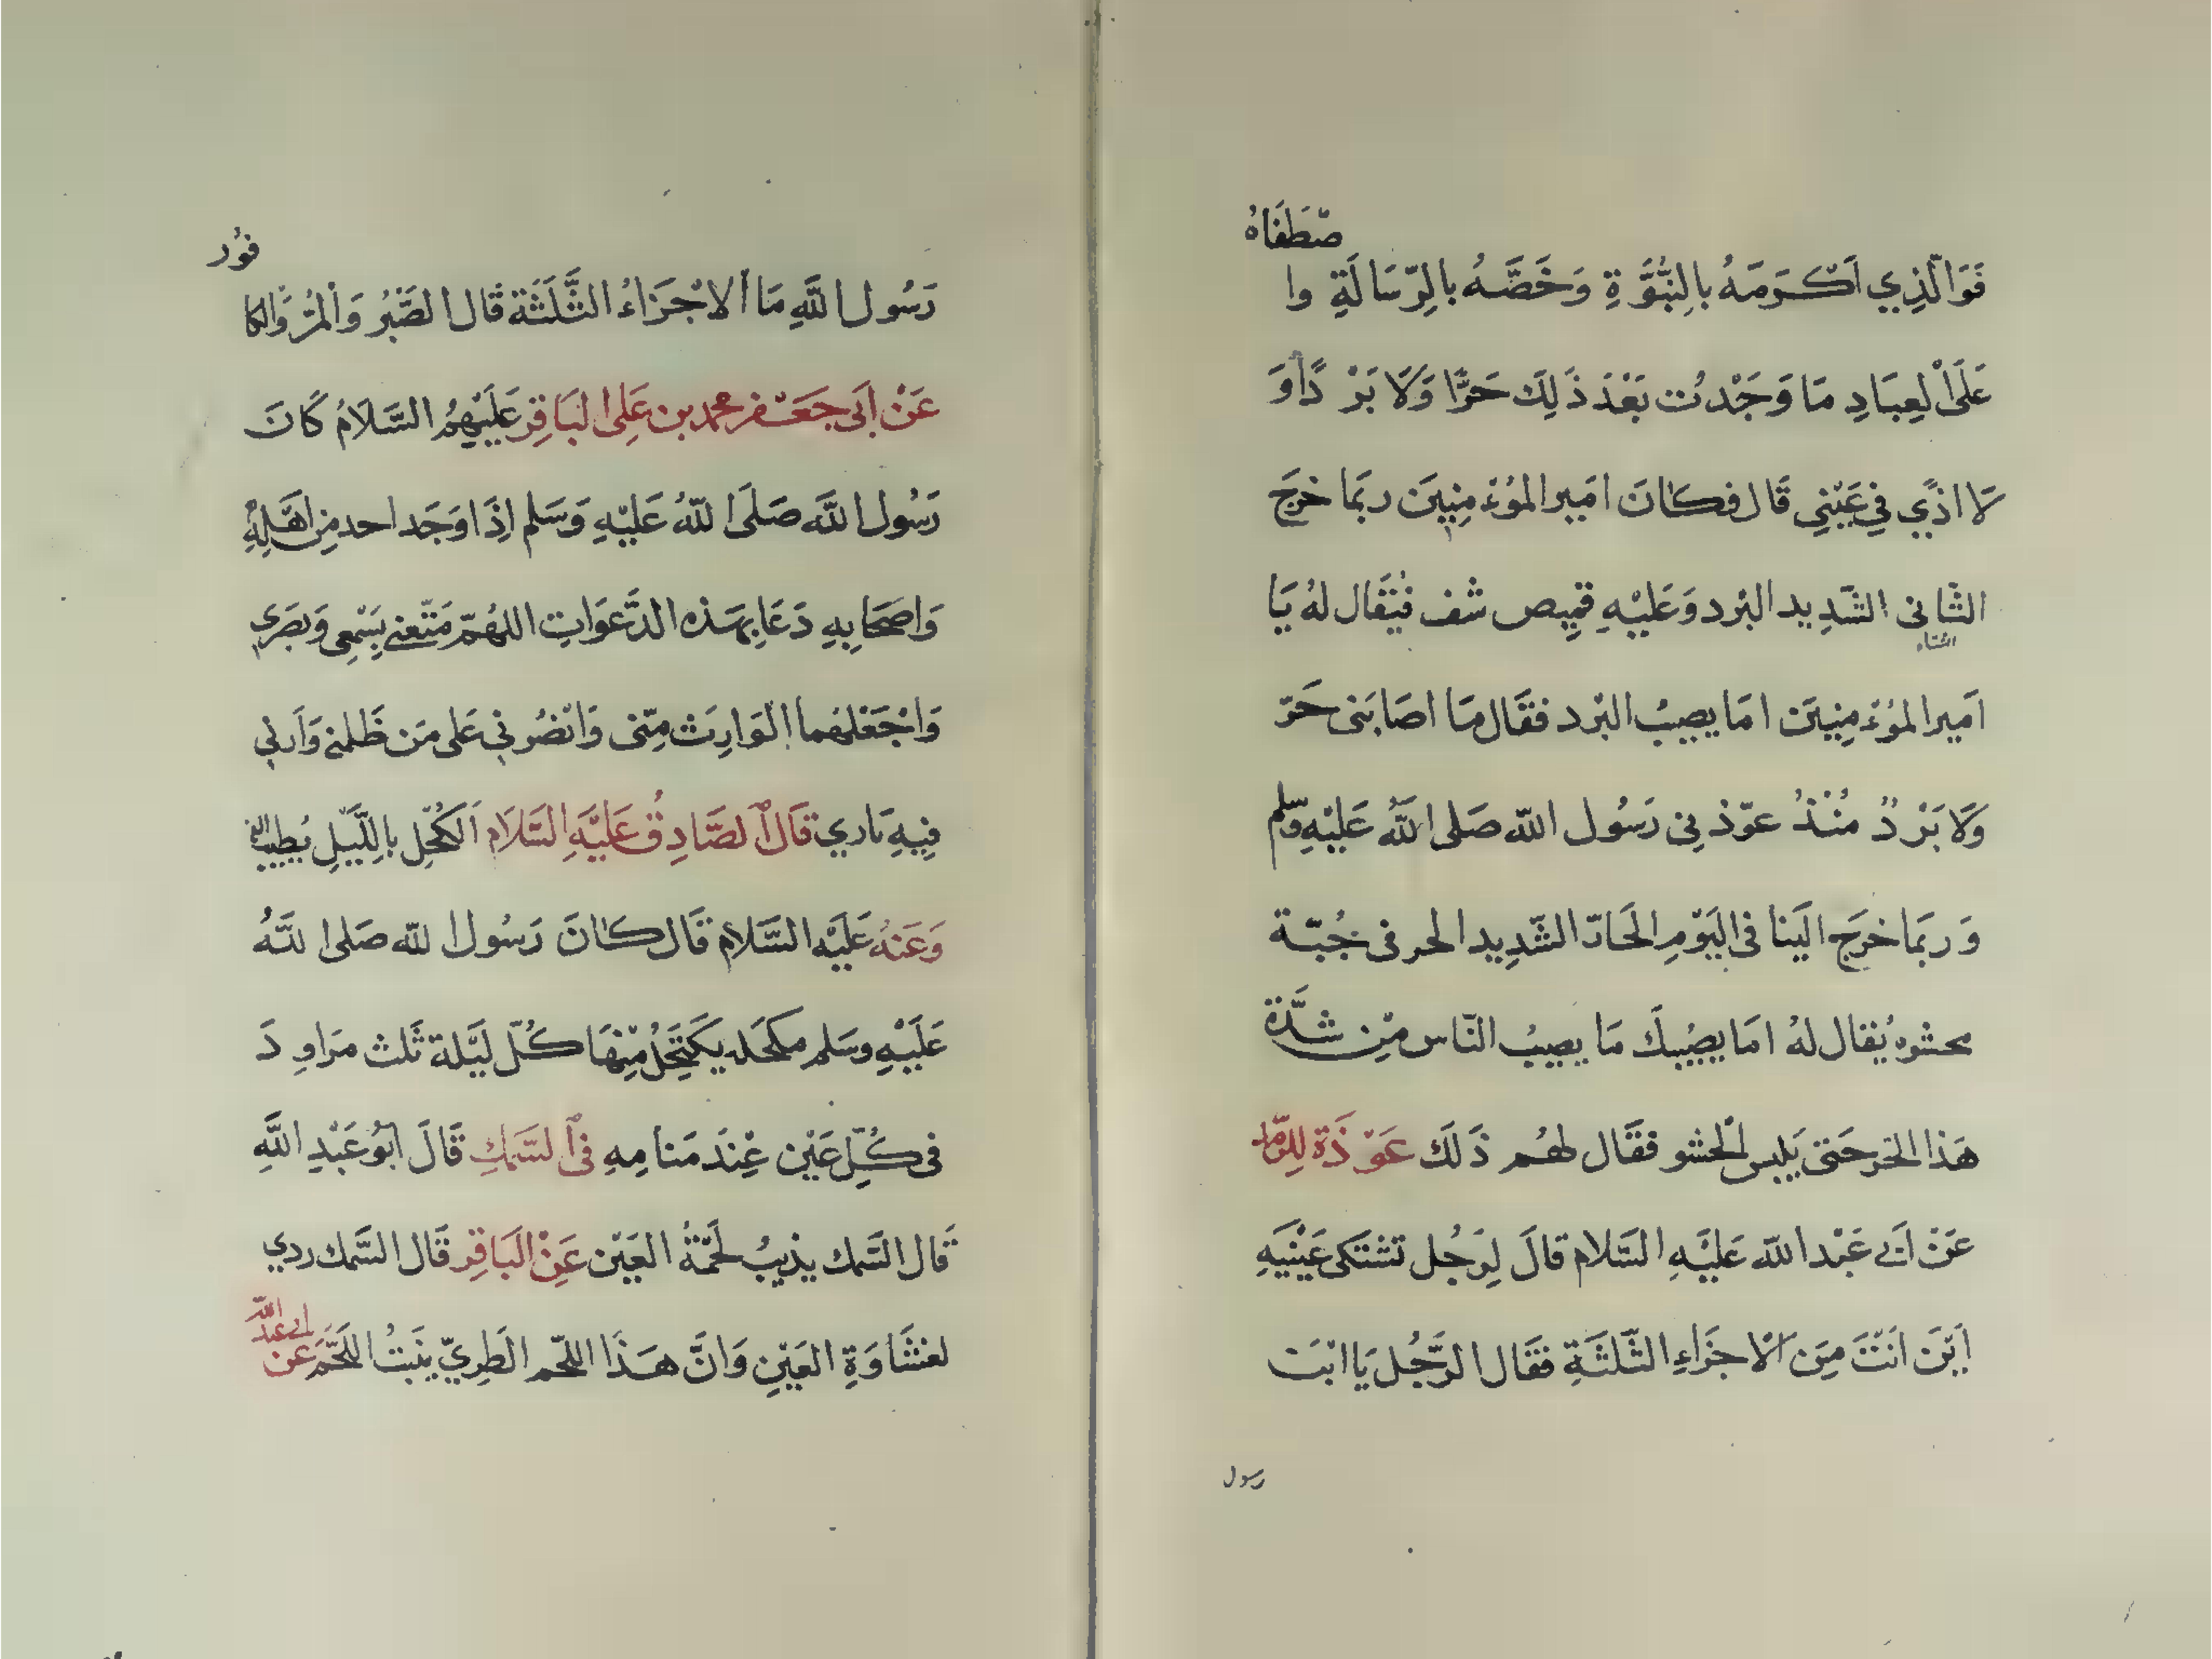 فَوَالَّذِي اَكْرَمَهُ بِالنُّبُوَّةِ وَخَصَّهُ بِالرِّسَالَةِ وا صْطَفَاهُ
عَلَى الْعِبَادِ مَا وَجَدْتُ بَعْدَ ذَلِكَ حَرًّا وَلَا بَرْدًا وَ
لَا اذًي فِي عَيْنِي قَال فكَانَ امَير المُؤمِنِينَ ربمَا خرجَ
الثَّانى الشَّدِيد البْرد وَعَليْهِ قمِيص شف فيُقَال لهُ يَا
الشتاء
اَمير المؤمِنِينَ امَا يصِيبُ البْرد فقَال مَا اصَابَنى حَرّ
وَلَا بَرْدٌ مُنْذُ عوّذنِى رَسُول الله صَلى اللهُ عَليْهِ وسّلم
وَربمَا خرَج الَينا فى اليَوْمِ الحَارّ الشّدِيد الحر فى جُبّة
محشوه يُقال لهُ امَا يصِيبكَ مَا يصِيبُ النّاس مِن شدَّة
هَذا الحَر حَتى يَلبس الْحشو فقَال لهُم ذَلكَ عَوْذَة لِلرّمد
عَنْ اَبى عَبْد الله عَليْهِ السَّلام قالَ لِرَجُل تشتكى عَيْنيَهِ
اَيْنَ اَنْتَ مِنَ الْاجَزَاءِ الثَّلثَةِ فقَال الرَّجُل يَا ابْنَ
رسول
رَسُول اللَّهِ مَا الاجْزَاءُ الثَّلَثَة قَال الصَّبْرُ وَالْمُرُّ وَالكا فوُر
عَنْ اَبى جَعْفر محمد بن عَلِى البَاقِر عَلَيْهِمُ السَّلَامُ كَانَ
رَسُول اللَّه صَلَى اللّهُ عَليْهِ وَسَلم اِذَا وَجَد احد مِن اهَلِهِ
وَاصحَابِهِ دَعَا بِهَذه الدَّعَوَاتِ اللهُمّ مَتّعنى بِسَمْعِى وَبصَرى
وَاجْعَلهُما الوَارِثَ مِنّى وَانْصُرنى عَلى مَن ظَلمنى وَاَرنى
فِيهِ ثارِي قَالَ الصَّادِق عَليْهَ السَّلَام اَلكُحْل بِاللَّيْلِ يُطيب الفم
وَعَنهُ عَلَيْه السَّلام قَال كَانَ رَسُول الله صَلى اللَّهُ
عَلَيْهِ وسَلم مكحَله يَكتَحِلُ مِنْهَا كُلّ ليَلة ثَلث مرَاودَ
فى كُلّ عَيْن عِنْدَ مَنامِهِ فى السَّمَكِ قَالَ اَبُو عَبْدِ اللَّهِ
قَال السَّمك يذِيبُ لَحْمَةُ العَيْن عَنِ البَاقِر قَال السَّمك ردى
لغشَاوَةِ العَيْنِ وَانَّ هَذَا اللحّم الَطرِىّ ينَبتُ اللَحَّمَ عَن ابى عبد الله